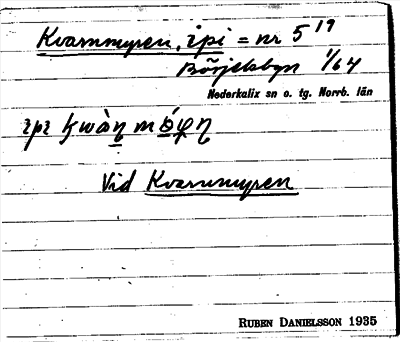 Kvarnmyren, ipi = nr 5 19
Börjelsbyn 1/64
Nederkalix sn o. tg. Norrb. län
Vid Kvarnmyren
RUBEN DANIELSSON 1935